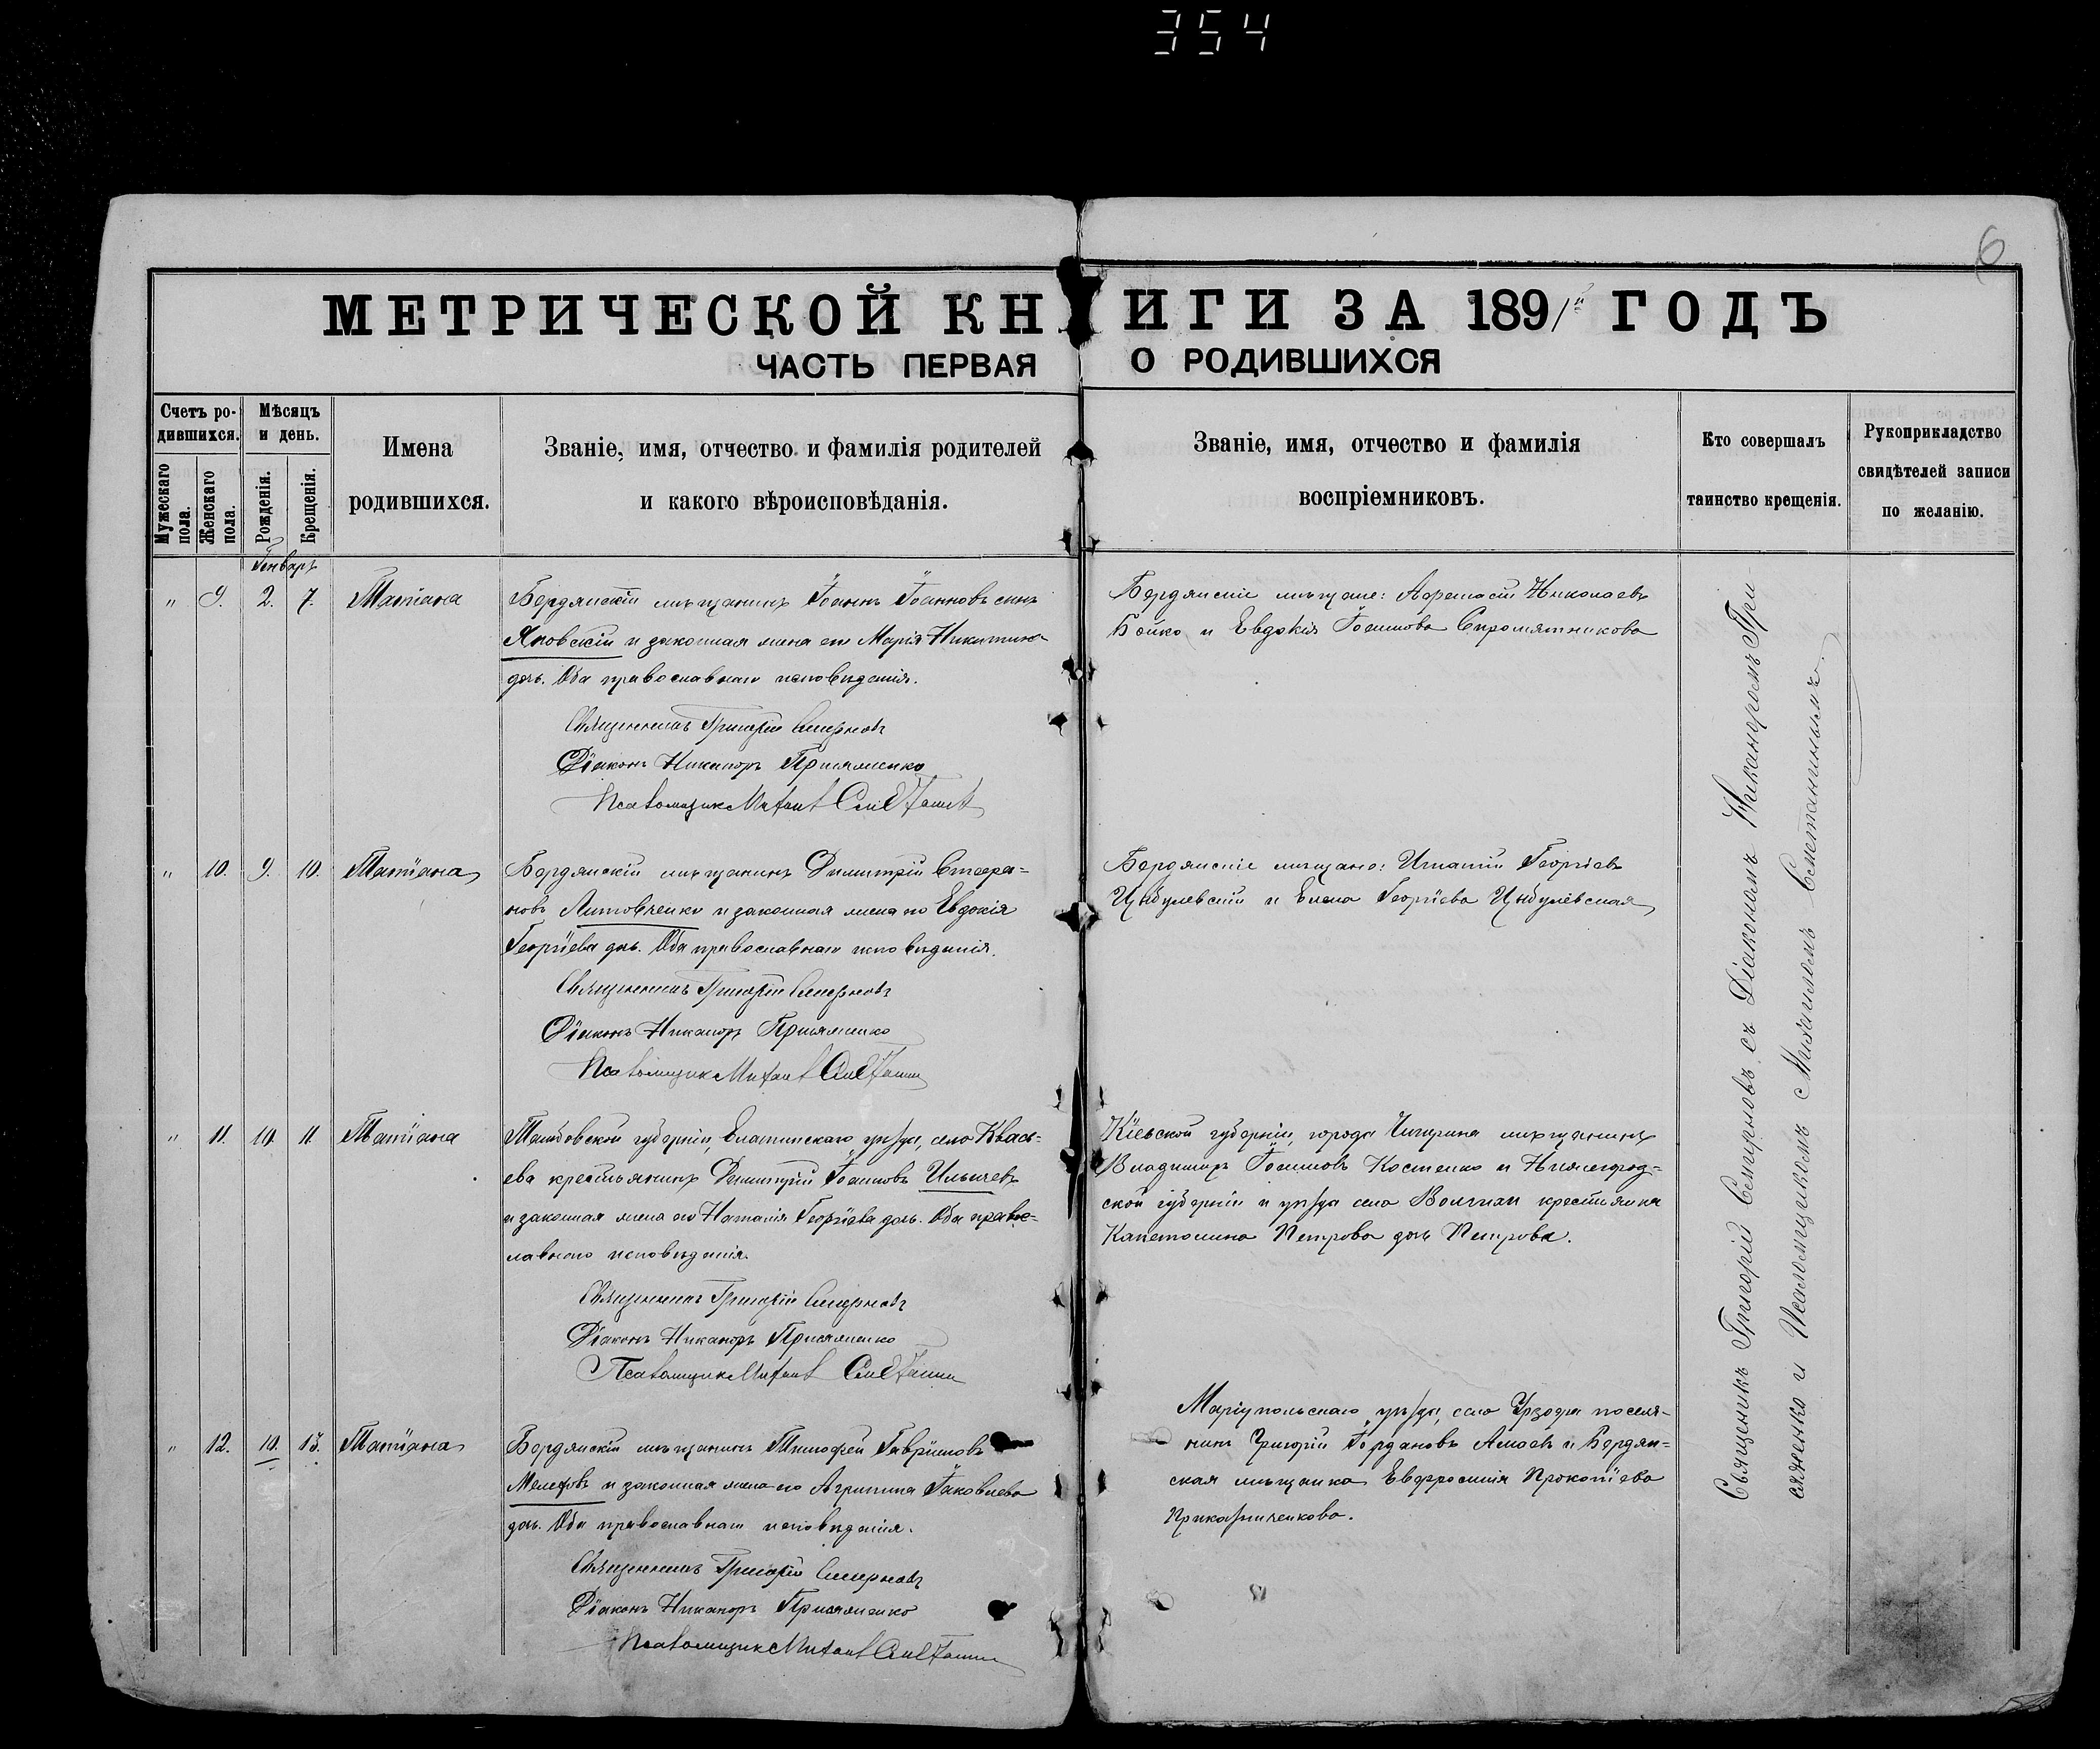 354
6
МЕТРИЧЕСКОЙ КНИГИ ЗА 1891й ГОДЪ
ЧАСТЬ ПЕРВАЯ О РОДИВШИХСЯ
Счетъ ро-
дившихся.
Мужескаго пола.
Женскаго пола.
Мѣсяцъ
и день.
Рожденія.
Крещенія.
Имена
родившихся.
Званіе, имя, отчество и фамилія родителей
и какого вѣроисповѣданія.
Званіе, имя, отчество и фамилія
воспріемниковъ.
Кто совершалъ
таинство крещенія.
Рукоприкладство
свидѣтелей записи
по желанію.
Январь
" 9. 2. 7. Татіана
Бердянскій мѣщанинъ Іоаннъ Іоанновъ сынъ
Яновскій и законная жена его Марія Никитина
дочь. Оба православнаго исповѣданія.
Священникъ Григорій Смирновъ
Діаконъ Никаноръ Присяженко
Псаломщикъ Михаил Сметанин
Бердянскіе мѣщане: Афанасій Николаевъ
Бойко и Евдокія Іоаннова Сыромятникова
" 10. 9. 10. Татіана
Бердянскій мѣщанинъ Димитрій Стефа-
новъ Литовченко и законная жена его Евдокія
Георгіева дочь. Оба православнаго исповѣданія.
Священникъ Григорій Смирновъ
Діаконъ Никаноръ Присяженко
Псаломщик Михаил Сметанин
Бердянскіе мѣщане: Игнатій Георгіевъ
Цыбулевскій и Елена Георгіева Цыбулевская
" 11. 10. 11. Татіана
Тамбовской губерніи, Елатомскаго уѣзда, села Квась-
ева крестьянинъ Димитрій Іоанновъ Ильичевъ
и законная жена его Наталія Георгіева дочь. Оба право-
славнаго исповѣданія.
Священникъ Григорій Смирновъ
Діаконъ Никаноръ Присяженко
Псаломщик Михаил Сметанин
Кіевской губерніи, города Чигирина мѣщанинъ
Владимиръ Іоанновъ Костенко и Нижегород-
ской губерніи и уѣзда села крестьянка
Капетолина Петрова дочь Петрова.
" 12. 10. 13. Татіана
Бердянскій мѣщанинъ Тимофей Гавріиловъ
и законная жена его Агрипина Іаковлева
дочь. Оба православнаго исповѣданія.
Священникъ Григорій Смирновъ
Діаконъ Никаноръ Присяженко
Псаломщик Михаил Сметанин
Маріупольскаго уѣзда, села Урзуфа поселя-
нинъ Григорій Іордановъ и Бердян-
ская мѣщанка Евфросинія Прокопіева
Священникъ Григорій Смирновъ съ Діакономъ Никаноромъ При-
сяженко и Псаломщикомъ Михаиломъ Сметанинымъ.